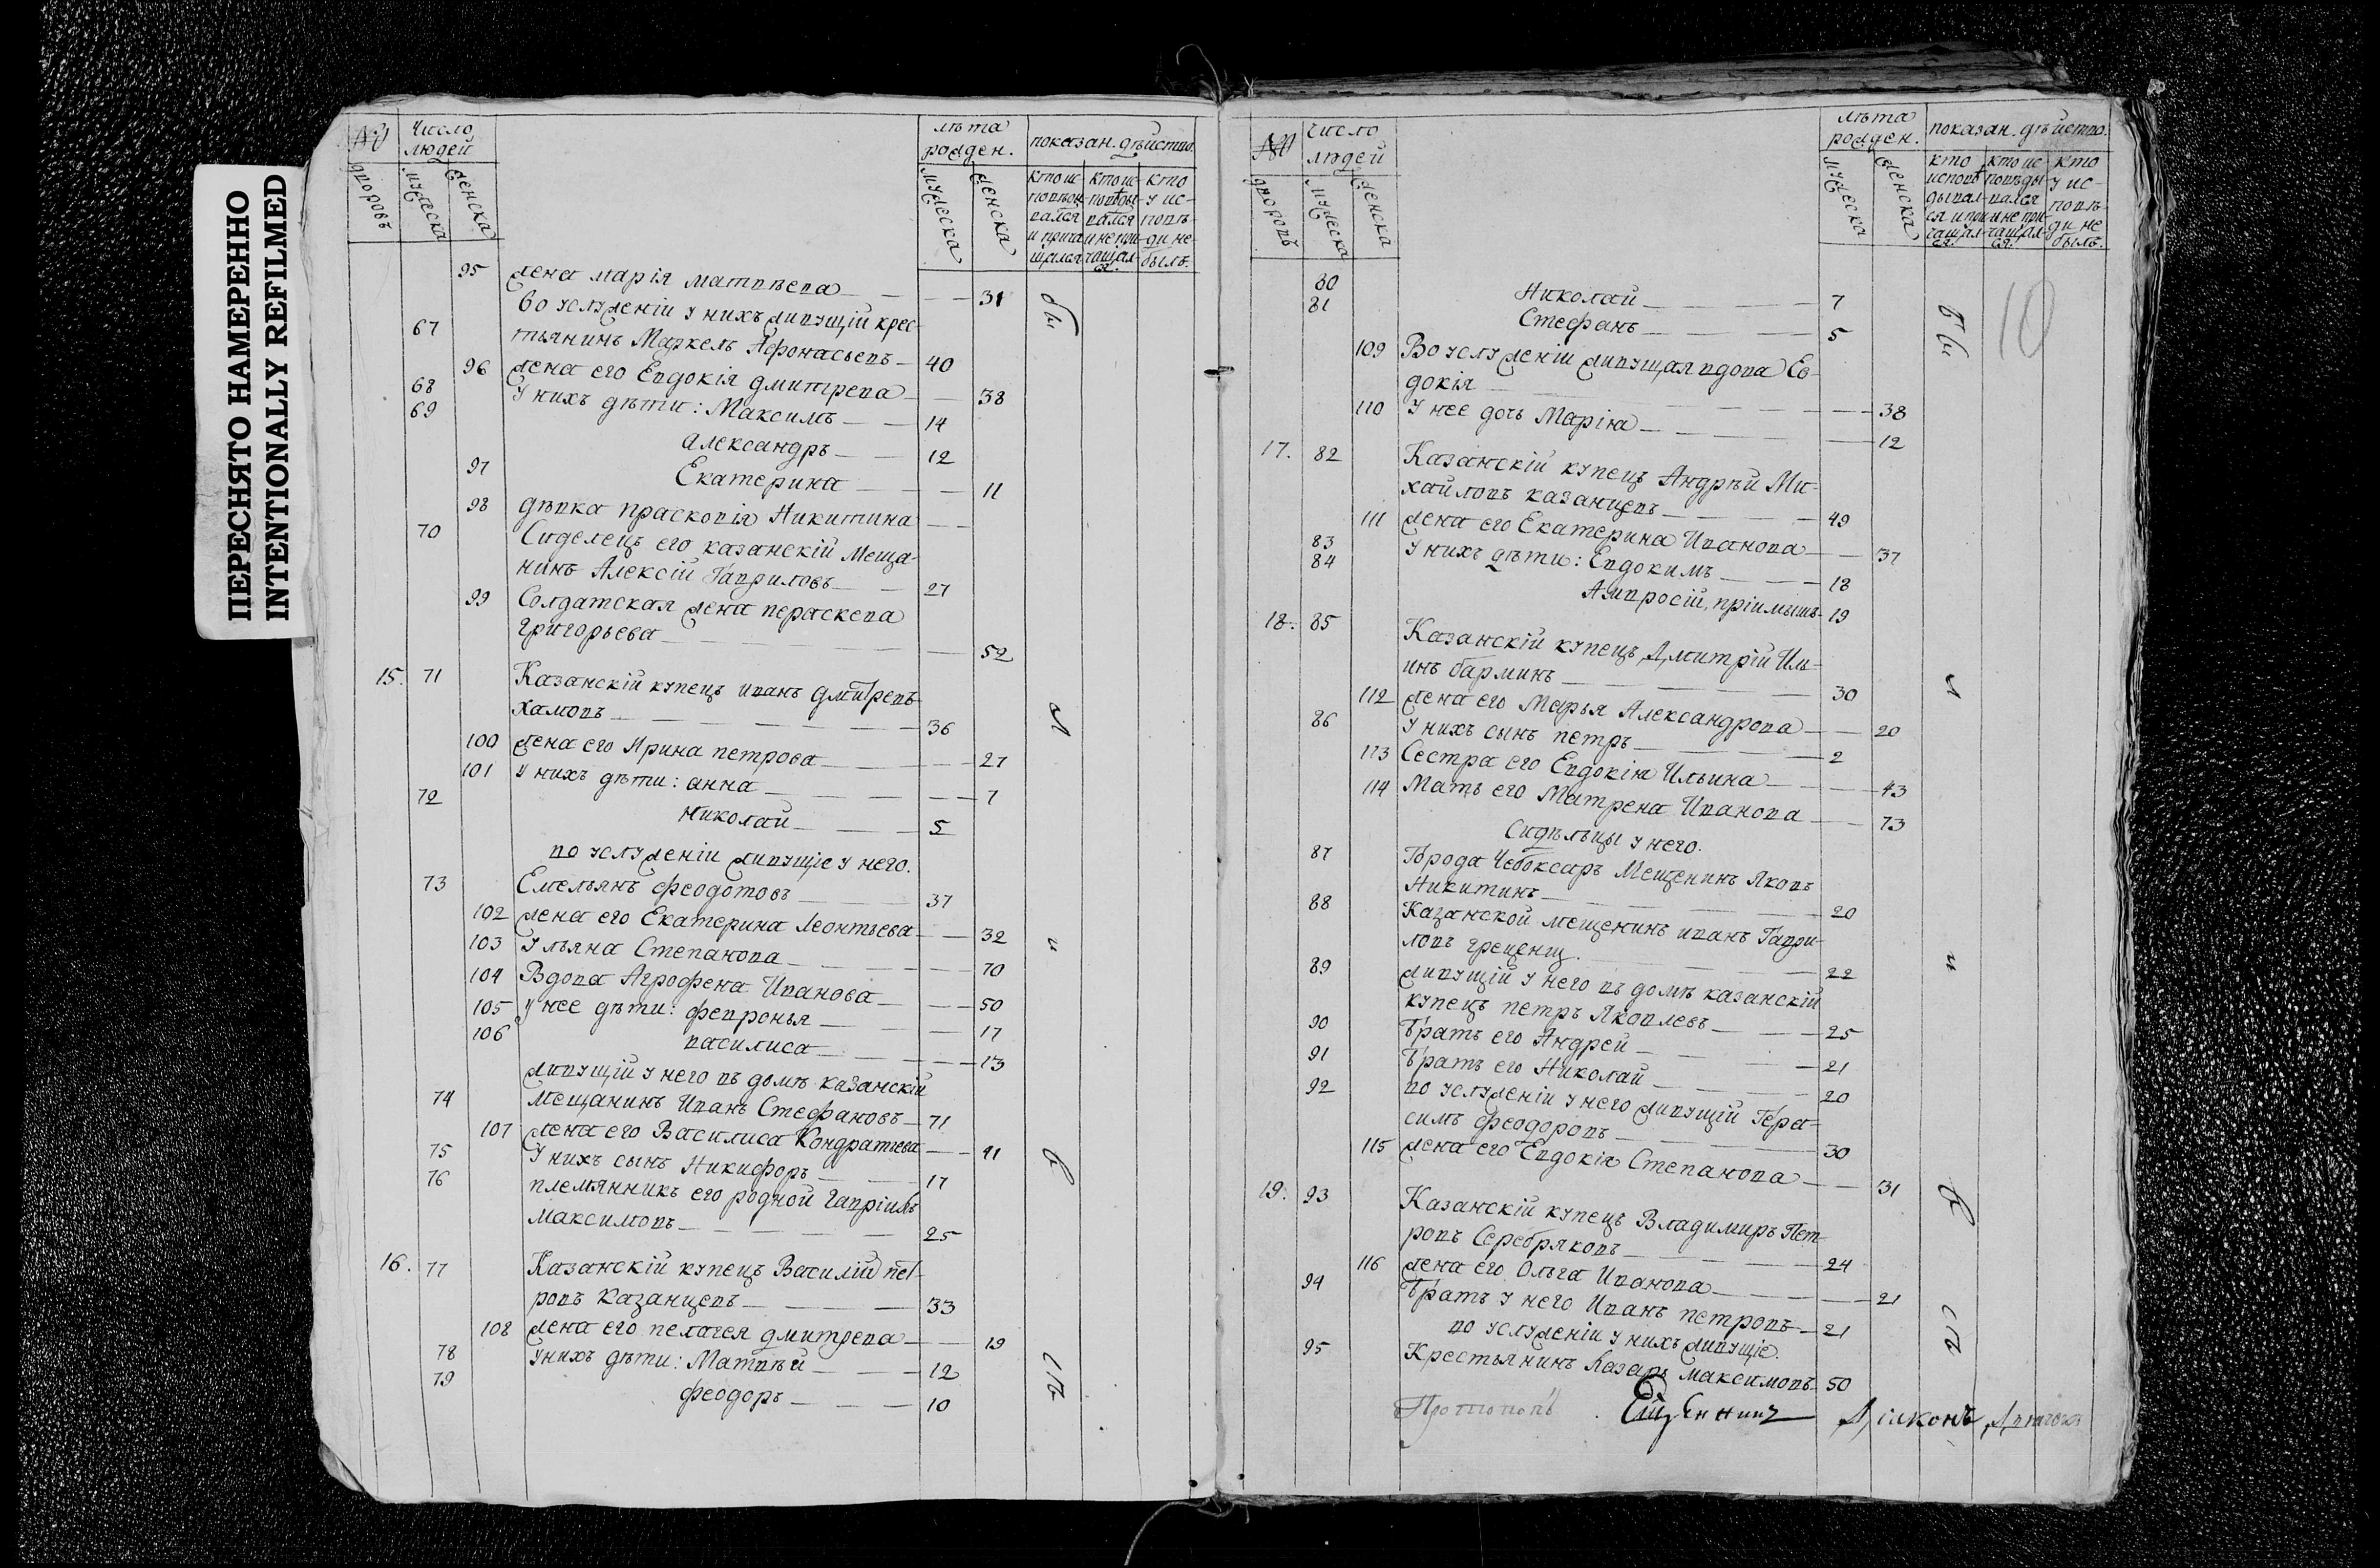 ПЕРЕСНЯТО НАМЕРЕННО
INTENTIONALLY REFILMED
№ Число людей лѣта рожден. показан. дѣйство.
дворовъ мужеска женска мужеска женска
кто исповѣдывался и причащался
кто исповѣдывался и не причащался
кто у исповѣди не былъ.
95 жена марія матвѣева 31
во услуженіи у нихъ живущій крес-
67 тьянинъ Маркелъ Афонасьевъ 40
96 жена его Евдокія дмитрева 38
68 У нихъ дѣти: Максимъ 14
69 александръ 12
97 Екатерина 11
98 дѣвка прасковія Никитина
70 Сиделецъ его казанскій меща-
нинъ Алексій Гавриловъ 27
99 Солдатская жена параскева
григорьева 52
15. 71 Казанскій купецъ иванъ дмитревъ
хамовъ 36
100 жена его Ирина петрова 27
101 У нихъ дѣти: анна 7
72 Николай 5
во услуженіи живущіе у него.
73 Емельянъ феодотовъ 37
102 жена его Екатерина Леонтьева 32
103 Ульяна Степанова 70
104 Вдова Агрофена Иванова 50
105 У нее дѣти: февронья 17
106 василиса 13
живущій у него въ домѣ казанскій
74 мещанинъ Иванъ Стефановъ 71
107 жена его Василиса Кондратьева 41
75 У нихъ сынъ Никифоръ 17
76 племянникъ его родной Гавріилъ
максимовъ 25
16. 77 Казанскій купецъ Василій пет-
ровъ казанцевъ 33
108 жена его пелагея дмитрева 19
78 У нихъ дѣти: Матвѣй 12
79 феодоръ 10
№ Число людей лѣта рожден. показан. дѣйство.
дворовъ мужеска женска мужеска женска
кто исповѣдывался и причащался
кто исповѣдывался и не причащался
кто у исповѣди не былъ.
10
80 Николай 7
81 Стефанъ 5
109 Во услуженіи живущая вдова Ев-
докія 38
110 У нее дочь Марія 12
17. 82 Казанскій купецъ Андрѣй Ми-
хайловъ казанцевъ 49
111 жена его Екатерина Иванова 37
83 У нихъ дѣти: Евдокимъ 18
84 Амвросій, пріимышъ 19
18. 85 Казанскій купецъ Дмитрій Иль-
инъ барминъ 30
112 жена его Марья Александрова 20
86 У нихъ сынъ петръ 2
113 Сестра его Евдокія Ильина 43
114 Мать его Матрена Иванова 73
Сидѣльцы у него.
87 Города Чебоксаръ Мещенинъ Яковъ
Никитинъ 20
88 Казанской мещенинъ иванъ Гаври-
ловъ 22
89 живущій у него въ домѣ казанскій
купецъ петръ Яковлевъ 25
90 Братъ его Андрей 21
91 Братъ его Николай 20
92 во услуженіи у него живущій Гера-
симъ феодоровъ 30
115 жена его Евдокія Степанова 31
19. 93 Казанскій купецъ Владимиръ Пет-
ровъ Серебряковъ 24
116 жена его Ольга Иванова 21
94 Братъ у него Иванъ петровъ 21
во услуженіи у нихъ живущіе.
95 Крестьянинъ Назаръ максимовъ 50
Протопопъ Диаконъ